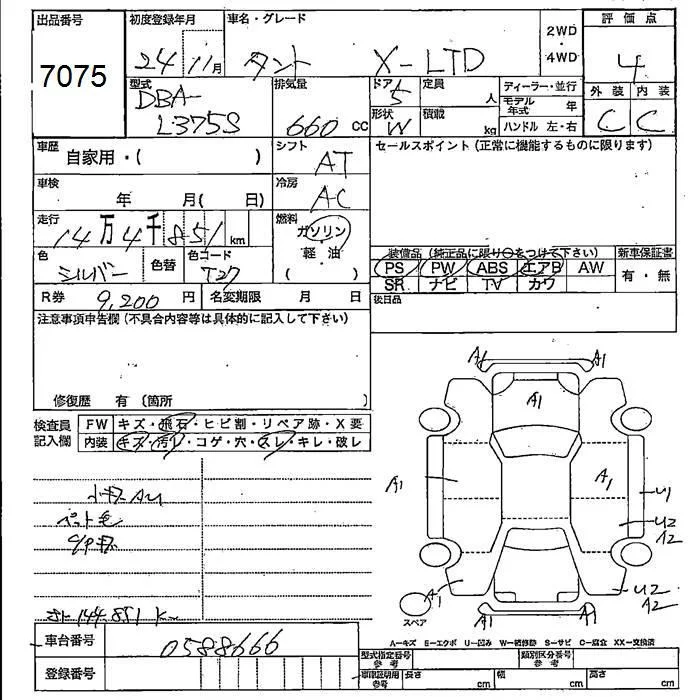 出品番号 初度登録年月 車名・グレード 2WD・4WD 評価点
7075 24 11月 タント X-LTD 4
型式 排気量 ドア 定員 ディーラー・並行 外装 内装
DBA-L375S 660 cc 5 人 モデル年式 年 C C
形状 積載 ハンドル 左・右
W kg
車歴 自家用・( ) シフト AT セールスポイント (正常に機能するものに限ります)
車検 年 月( 日) 冷房 AC
走行 14万4千851km 燃料 ガソリン・軽油( )
色 シルバー 色替 色コード T27
装備品 (純正品に限り○をつけて下さい) 新車保証書
PS PW ABS エアB AW 有・無
SR ナビ TV カワ
R券 9,200円 名変期限 月 日 後日品
注意事項申告欄 (不具合内容等は具体的に記入して下さい)
修復歴 有 (箇所 )
検査員記入欄 FW キズ・飛石・ヒビ割・リペア跡・X要
内装 キズ・汚レ・コゲ・穴・スレ・キレ・破レ
A1 A1
A1
A1 A1 U1
U2 A2
A1 U2 A2
A1 A1
小キズAU
ペット毛
144,851 km
スペア
A-キズ E-エクボ U-凹み W-補修跡 S-サビ C-腐食 XX-交換済
車台番号 0588666 型式指定番号 参考 類別区分番号 参考
登録番号 車庫証明用 参考 長さ cm 幅 cm 高さ cm